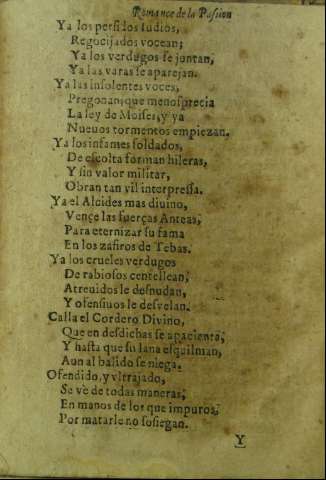 Romance de la Passion
Ya los perfidos Iudios,
Regocijados vocean;
Ya los verdugos se juntan,
Ya las varas se aparejan.
Ya las insolentes voces,
Pregonan; que menosprecia
La ley de Moises, y ya
Nuevos tormentos empiezan.
Ya los infames soldados,
De escolta forman hileras,
Y sin valor militar,
Obran tan vil interpressa.
Ya el Alcides mas divino,
Vençe las fuerças Anteas,
Para eternizar su fama
En los zafiros de Tebas.
Ya los crueles verdugos
De rabiosos centellean,
Atreuidos le desnudan,
Y ofensiuos le desvelan.
Calla el Cordero Divino,
Que en desdichas se apacienta,
Y hasta que su lana esquilman,
Aun al balido se niega.
Ofendido, y vltrajado,
Se ve de todas maneras,
En manos de los que impuros,
Por matarle no sosiegan.
Y